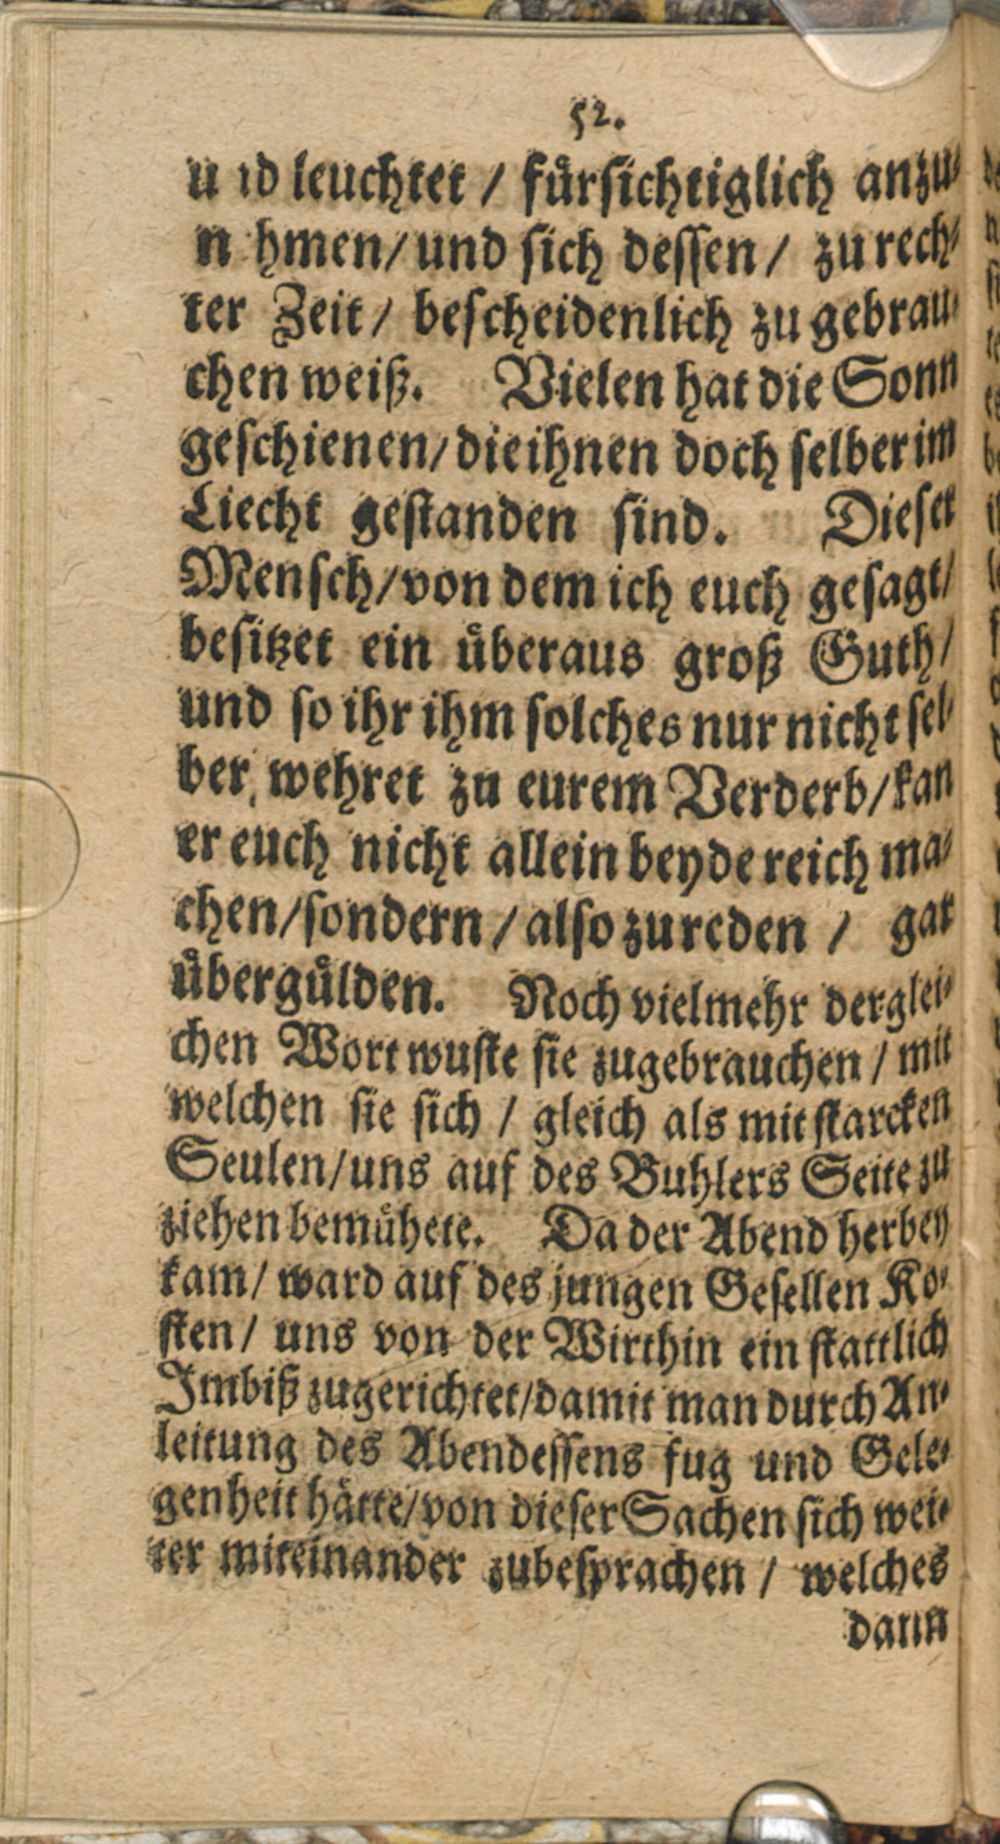 52.
und leuchtet / fürsichtiglich anzu-
nehmen/ und sich dessen/ zu rech-
ter Zeit/ bescheidenlich zu gebrau-
chen weiß. Vielen hat die Sonn
geschienen/ die ihnen doch selber im
Liecht gestanden sind. Dieser
Mensch/ von dem ich euch gesagt/
besitzet ein überaus groß Guth/
und so ihr ihm solches nur nicht sel-
ber wehret zu eurem Verderb/ kan
er euch nicht allein beyde reich ma-
chen/ sondern / also zureden / gar
übergülden. Noch vielmehr derglei-
chen Wort wuste sie zugebrauchen / mit
welchen sie sich / gleich als mit starcken
Seulen/ uns auf des Buhlers Seite zu
ziehen bemühete. Da der Abend herbey
kam/ ward auf des jungen Gesellen Ko-
sten/ uns von der Wirthin ein stattlich
Imbiß zugerichtet/ damit man durch An-
leitung des Abendessens fug und Gele-
genheit hätte/ von dieser Sachen sich wei-
ter miteinander zubesprachen / welches
dann